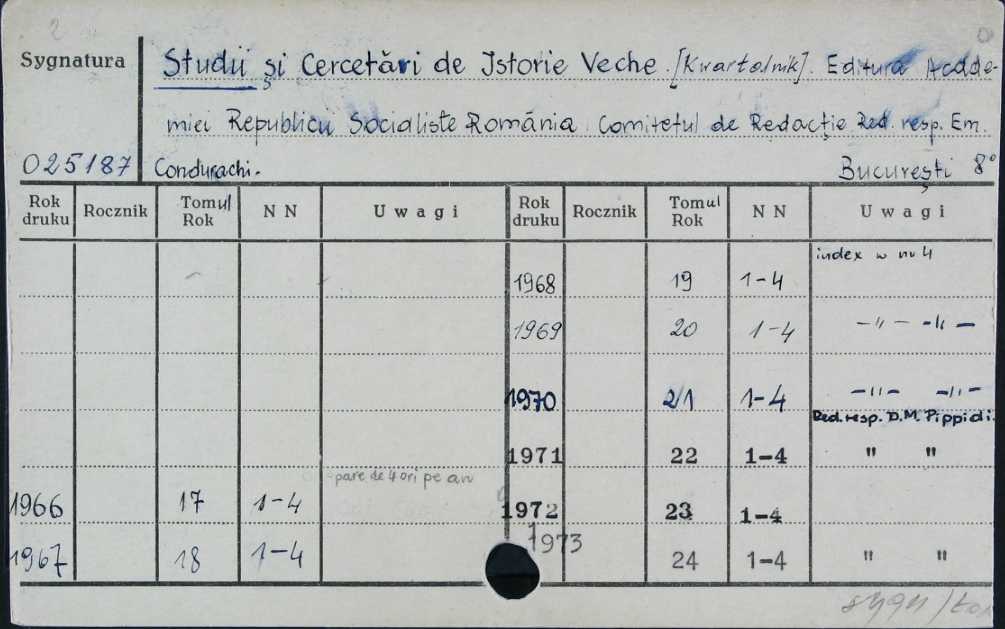 2
Sygnatura
Studii şi Cercetări de Istorie Veche. [Kwartalnik]. Editura Acade-
miei Republicii Socialiste România. Comitetul de Redacţie Red. resp. Em.
025187 Condurachi. Bucureşti 8°
Rok druku Rocznik Tomul Rok N N Uwagi Rok druku Rocznik Tomul Rok N N Uwagi
index w nr 4
1968 19 1-4
1969 20 1-4 -〃- -〃-
1970 21 1-4 -〃- -〃-
Red. resp. D.M. Pippidi.
1971 22 1-4 " "
apare de 4 ori pe an
1966 17 1-4 1972 23 1-4
1967 18 1-4 1973 24 1-4 " "